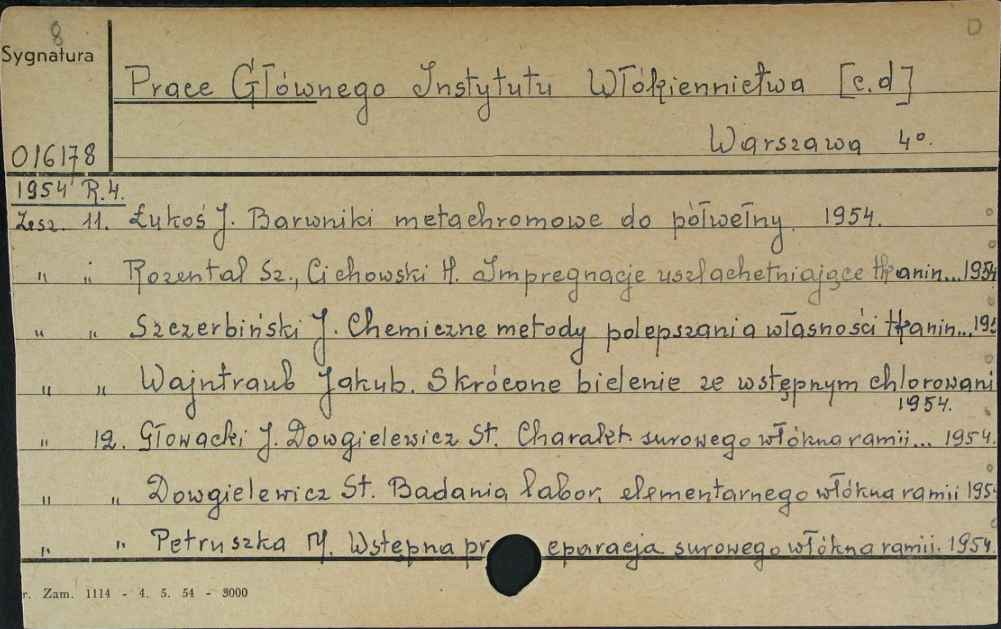 8
Sygnatura
Prace Głównego Instytutu Włókiennictwa [c.d]
Warszawa 4°.
016178
1954 R.4.
Zesz. 11. Łukoś J. Barwniki metachromowe do półwełny. 1954.
" " Rozental Sz., Cichowski H. Impregnacje uszlachetniające tkanin... 1954
" " Szczerbiński J. Chemiczne metody polepszania własności tkanin... 195
" " Wajntraub Jakub. Skrócone bielenie ze wstępnym chlorowani
1954.
" 12. Głowacki J. Dowgielewicz St. Charakt. surowego włókna ramii... 1954.
" " Dowgielewicz St. Badania labor. elementarnego włókna ramii 1954
" " Petruszka M. Wstępna preparacja surowego włókna ramii. 1954.
r. Zam. 1114 - 4. 5. 54 - 3000